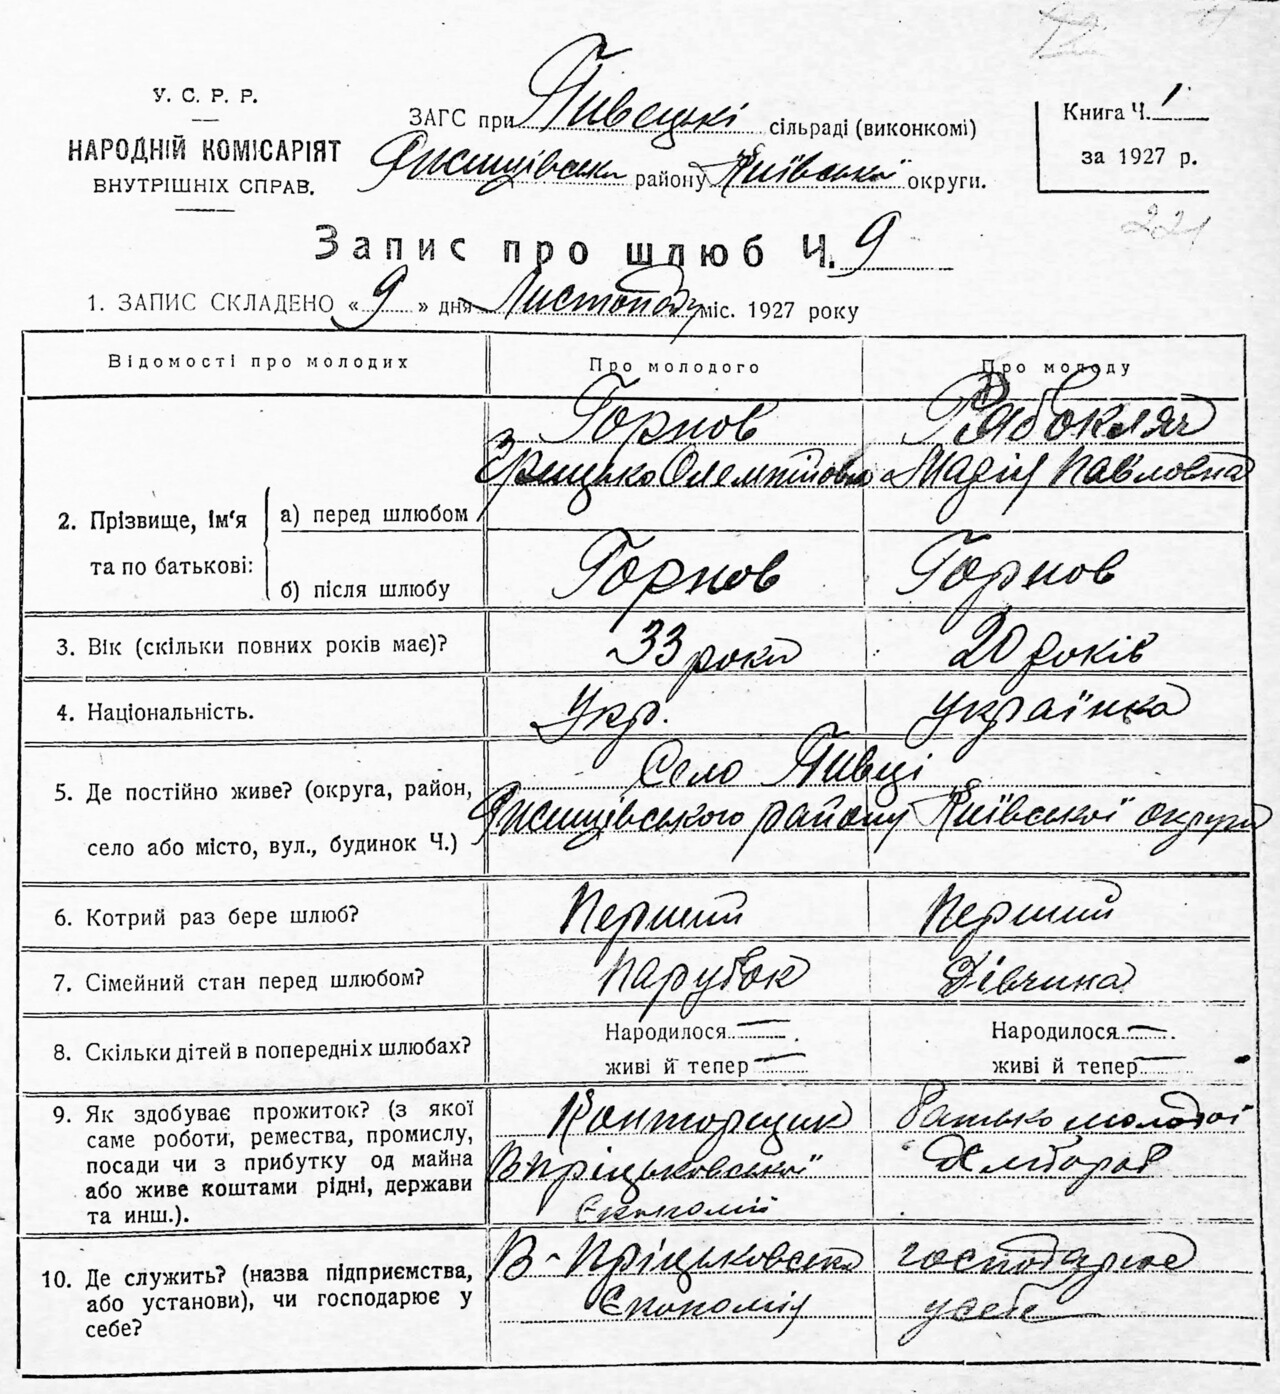 У. С. Р. Р.
НАРОДНІЙ КОМІСАРІЯТ
ВНУТРІШНІХ СПРАВ.
ЗАГС при Пивецкі сільраді (виконкомі)
Ржищівська району Київської округи.
Книга Ч. 1
за 1927 р.
221
Запис про шлюб Ч. 9
1. ЗАПИС СКЛАДЕНО « 9 » дня Листопаду міс. 1927 року
Відомості про молодих
Про молодого
Про молоду
2. Прізвище, ім'я та по батькові:
а) перед шлюбом
Горнов
Грицько
Рябокляч
Марія Павловна
б) після шлюбу
Горнов
Горнов
3. Вік (скільки повних років має)?
33 роки
20 років
4. Національність.
Укр.
Українка
5. Де постійно живе? (округа, район,
село або місто, вул., будинок Ч.)
Село Пивці
Ржищівського району Київської округи
6. Котрий раз бере шлюб?
Перший
Перший
7. Сімейний стан перед шлюбом?
Парубок
Дівчина
8. Скільки дітей в попередніх шлюбах?
Народилося —
живі й тепер —
Народилося —
живі й тепер —
9. Як здобуває прожиток? (з якої
саме роботи, ремества, промислу,
посади чи з прибутку од майна
або живе коштами рідні, держави
та инш.).
Конторщик
В-Пріцьковської
Єкономії
Батько молодої
Хлібороб
10. Де служить? (назва підприємства,
або установи), чи господарює у
себе?
В-Пріцьковська
Єкономія
господарює
у себе